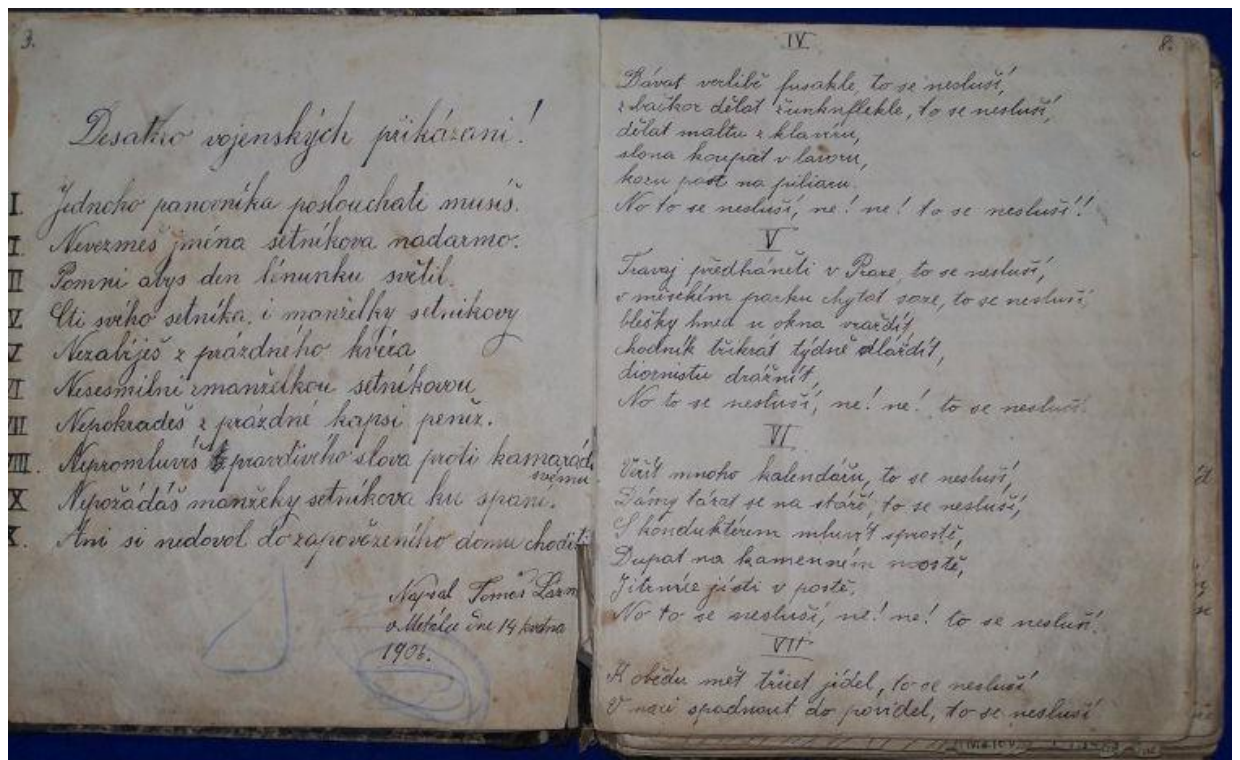 3.
Desatero vojenských přikázaní!
I. Jednoho panovníka poslouchati musíš.
II. Nevezmeš jména setníkova nadarmo.
III Pomni abys den lénunku světil.
IV Cti svého setníka i manželky setníkovy
V Nezabiješ z prázdného kvéra
VI Nesesmilni zmanželkou setníkovou
VII Nepokradeš z prázdné kapsi peněz.
VIII. Nepromluvíš pravdivého slova proti kamarádu
svému.
IX Nepožádáš manžeky setníkova ku spaní.
X. Ani si nedovol do zapovězeního domu choditi.
Napsal Tomáš
dne 14 května
1906.
8.
IV
Dávat verlibě fusakle, to se nesluší,
z bačkor dělat žunknflekle, to se nesluší,
dělat maltu z klavíru,
slona koupat v lavoru,
kozu past na piliaru.
No to se nesluší, ne! ne! to se nesluší!
V
Travaj předháněti v Praze, to se nesluší,
v městkém parku chytat saze, to se nesluší,
blešky hned u okna vraždit,
chodník třikrát týdně dlaždit,
diurnistu dráźnit,
No to se nesluší, ne! ne! to se nesluší.
VI
Věřit mnoho kalendářu, to se nesluší,
Dámy tázat se na stáří, to se nesluší,
S kondukterem mluvit sprostě,
Dupat na kamenném mostě,
Jitrnice jísti v postě,
No to se nesluší, ne! ne! to se nesluší!
VII
K obědu mět třicet jídel, to se nesluší
V noci spadnout do povidel, to se nesluší